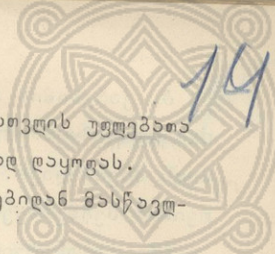 14
ათვლის უფლებათა
ად დაყოფას.
ებიდან მასწავლ-